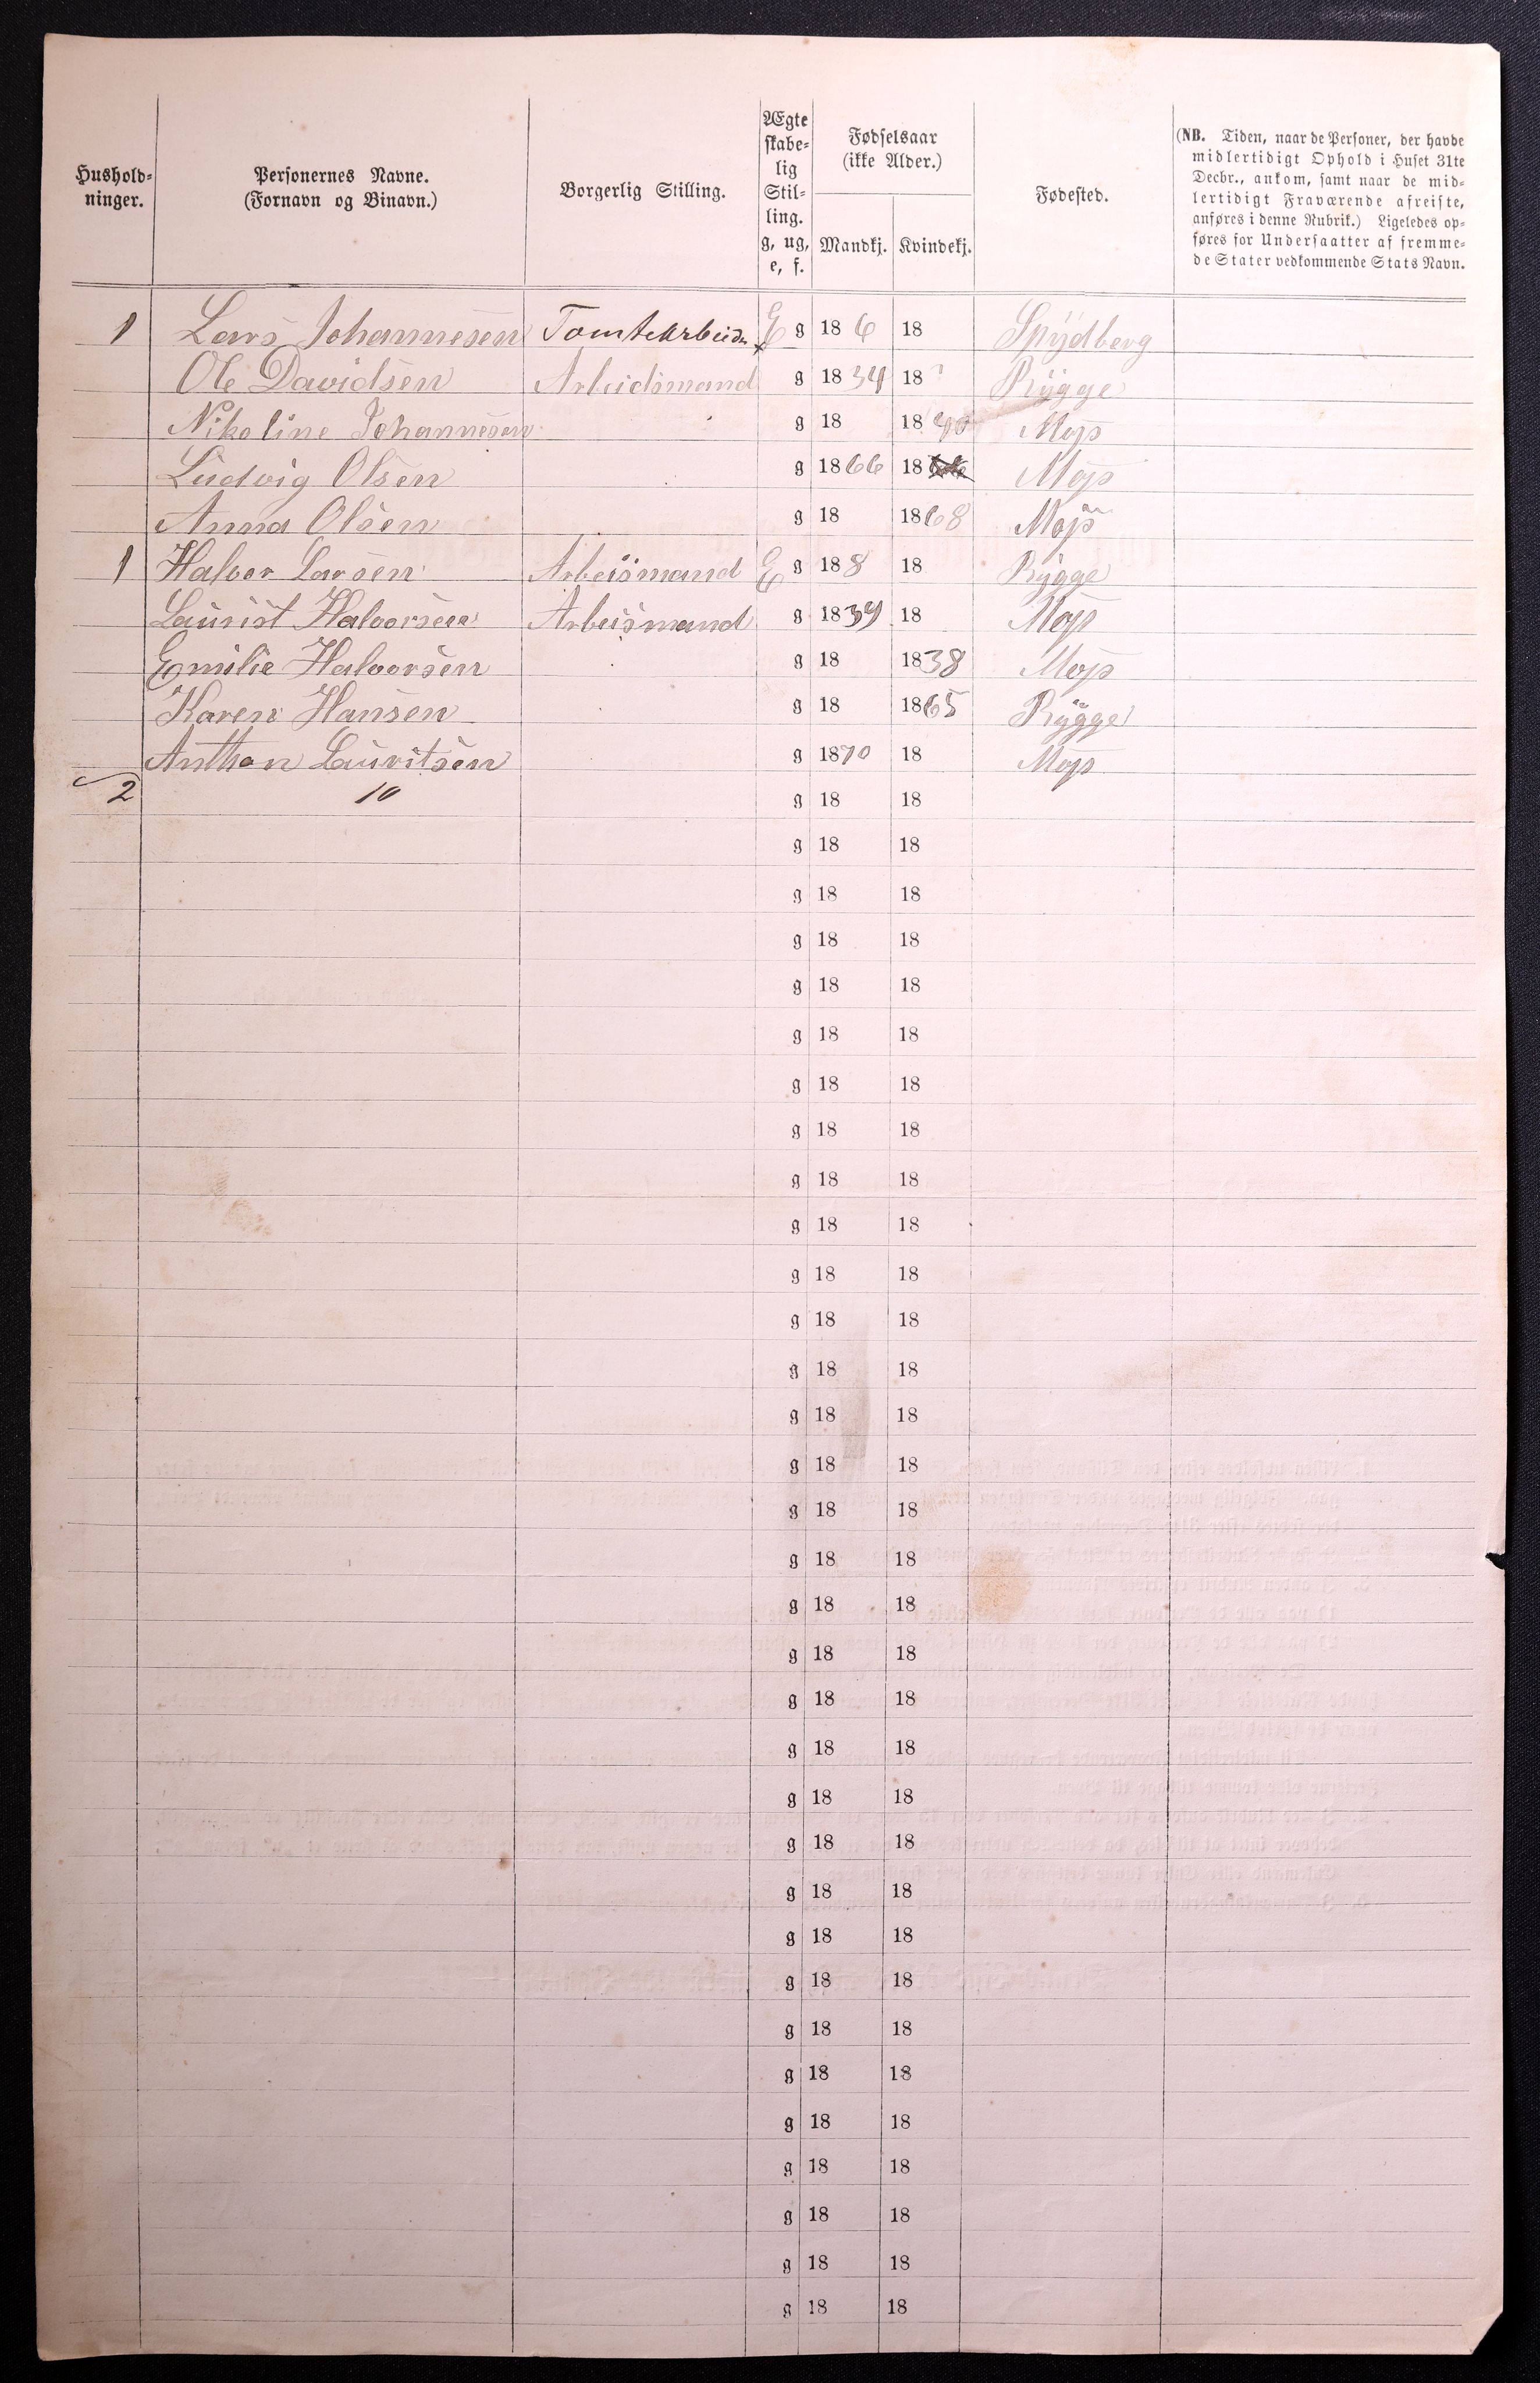 Hushold-
ninger.
Personernes Navne.
(Fornavn og Binavn.)
Borgerlig Stilling.
Ægte
skabe-
lig
Stil-
ling.
g, ug,
e, f.
Fødselsaar
(ikke Alder.)
Mandkj. Kvindekj.
Fødested.
(NB. Tiden, naar de Personer, der havde
midlertidigt Ophold i Huset 31te
Decbr., ankom, samt naar de mid-
lertidigt Fraværende afreiste,
anføres i denne Rubrik.) Ligeledes op-
føres for Undersaatter af fremme-
de Stater vedkommende Stats Navn.
1 Lars Johannesen Tomtearbeider E g 18 6 18 Spydberg
Ole Davidsen Arbeidsmand g 18 34 18 Rygge
Nikoline Johannesen g 18 18 40 Mojs
Ludvig Olsen g 18 66 18 Mojs
Anna Olsen g 18 18 68 Mojs
1 Halvor Larsen Arbeismand E g 18 8 18 Rygge
Laurist Halvorsen Arbeismand g 18 34 18 Mojs
Emilie Halvorsen g 18 18 38 Mojs
Karen Hansen g 18 18 65 Rygge
Anthon Lauritsen g 18 70 18 Mojs
2 10 g 18 18
g 18 18
g 18 18
g 18 18
g 18 18
g 18 18
g 18 18
g 18 18
g 18 18
g 18 18
g 18 18
g 18 18
g 18 18
g 18 18
g 18 18
g 18 18
g 18 18
g 18 18
g 18 18
g 18 18
g 18 18
g 18 18
g 18 18
g 18 18
g 18 18
g 18 18
g 18 18
g 18 18
g 18 18
g 18 18
g 18 18
g 18 18
g 18 18